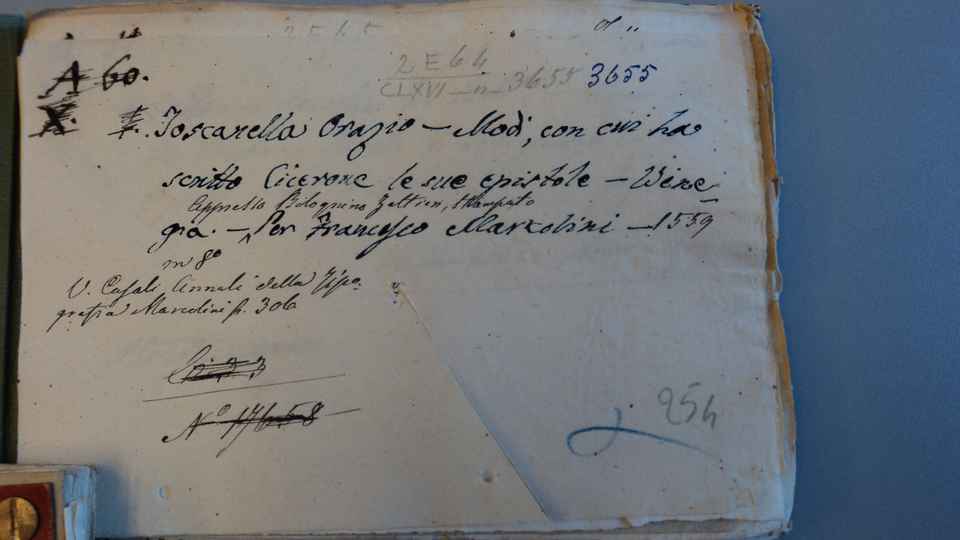 2565
A 60.
2 E 64
CLXVI _ n _ 3655 3655
X. Toscanella Orazio — Modi, con cui ha
scritto Cicerone le sue epistole — Vene
Appresso Bolognino Zaltieri, stampato
gia. — Per Francesco Marcolini — 1559
in 8°
V. Casali Annali della Tipo
grafia Marcolini p. 306
N° 17658
254